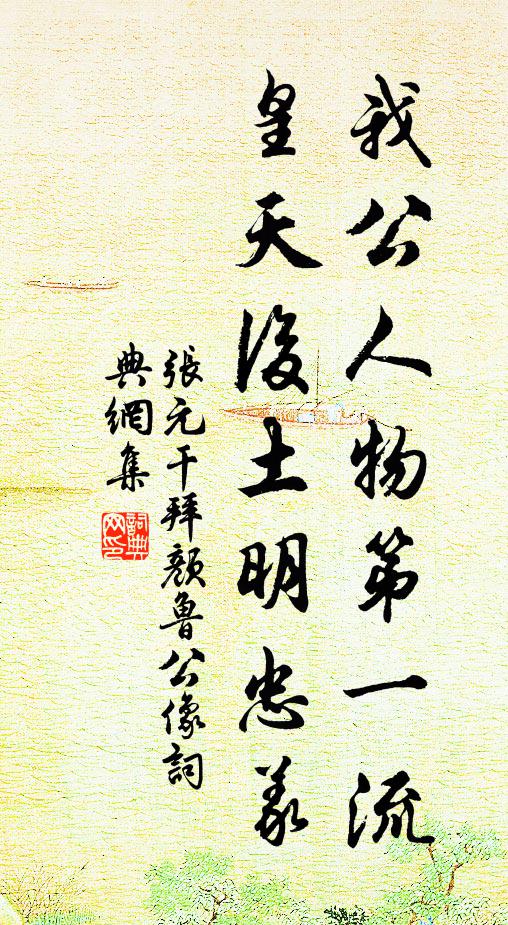 我公人物第一流
皇天後土明忠義
張元干拜顏魯公像詞
典網集
詞典
网印